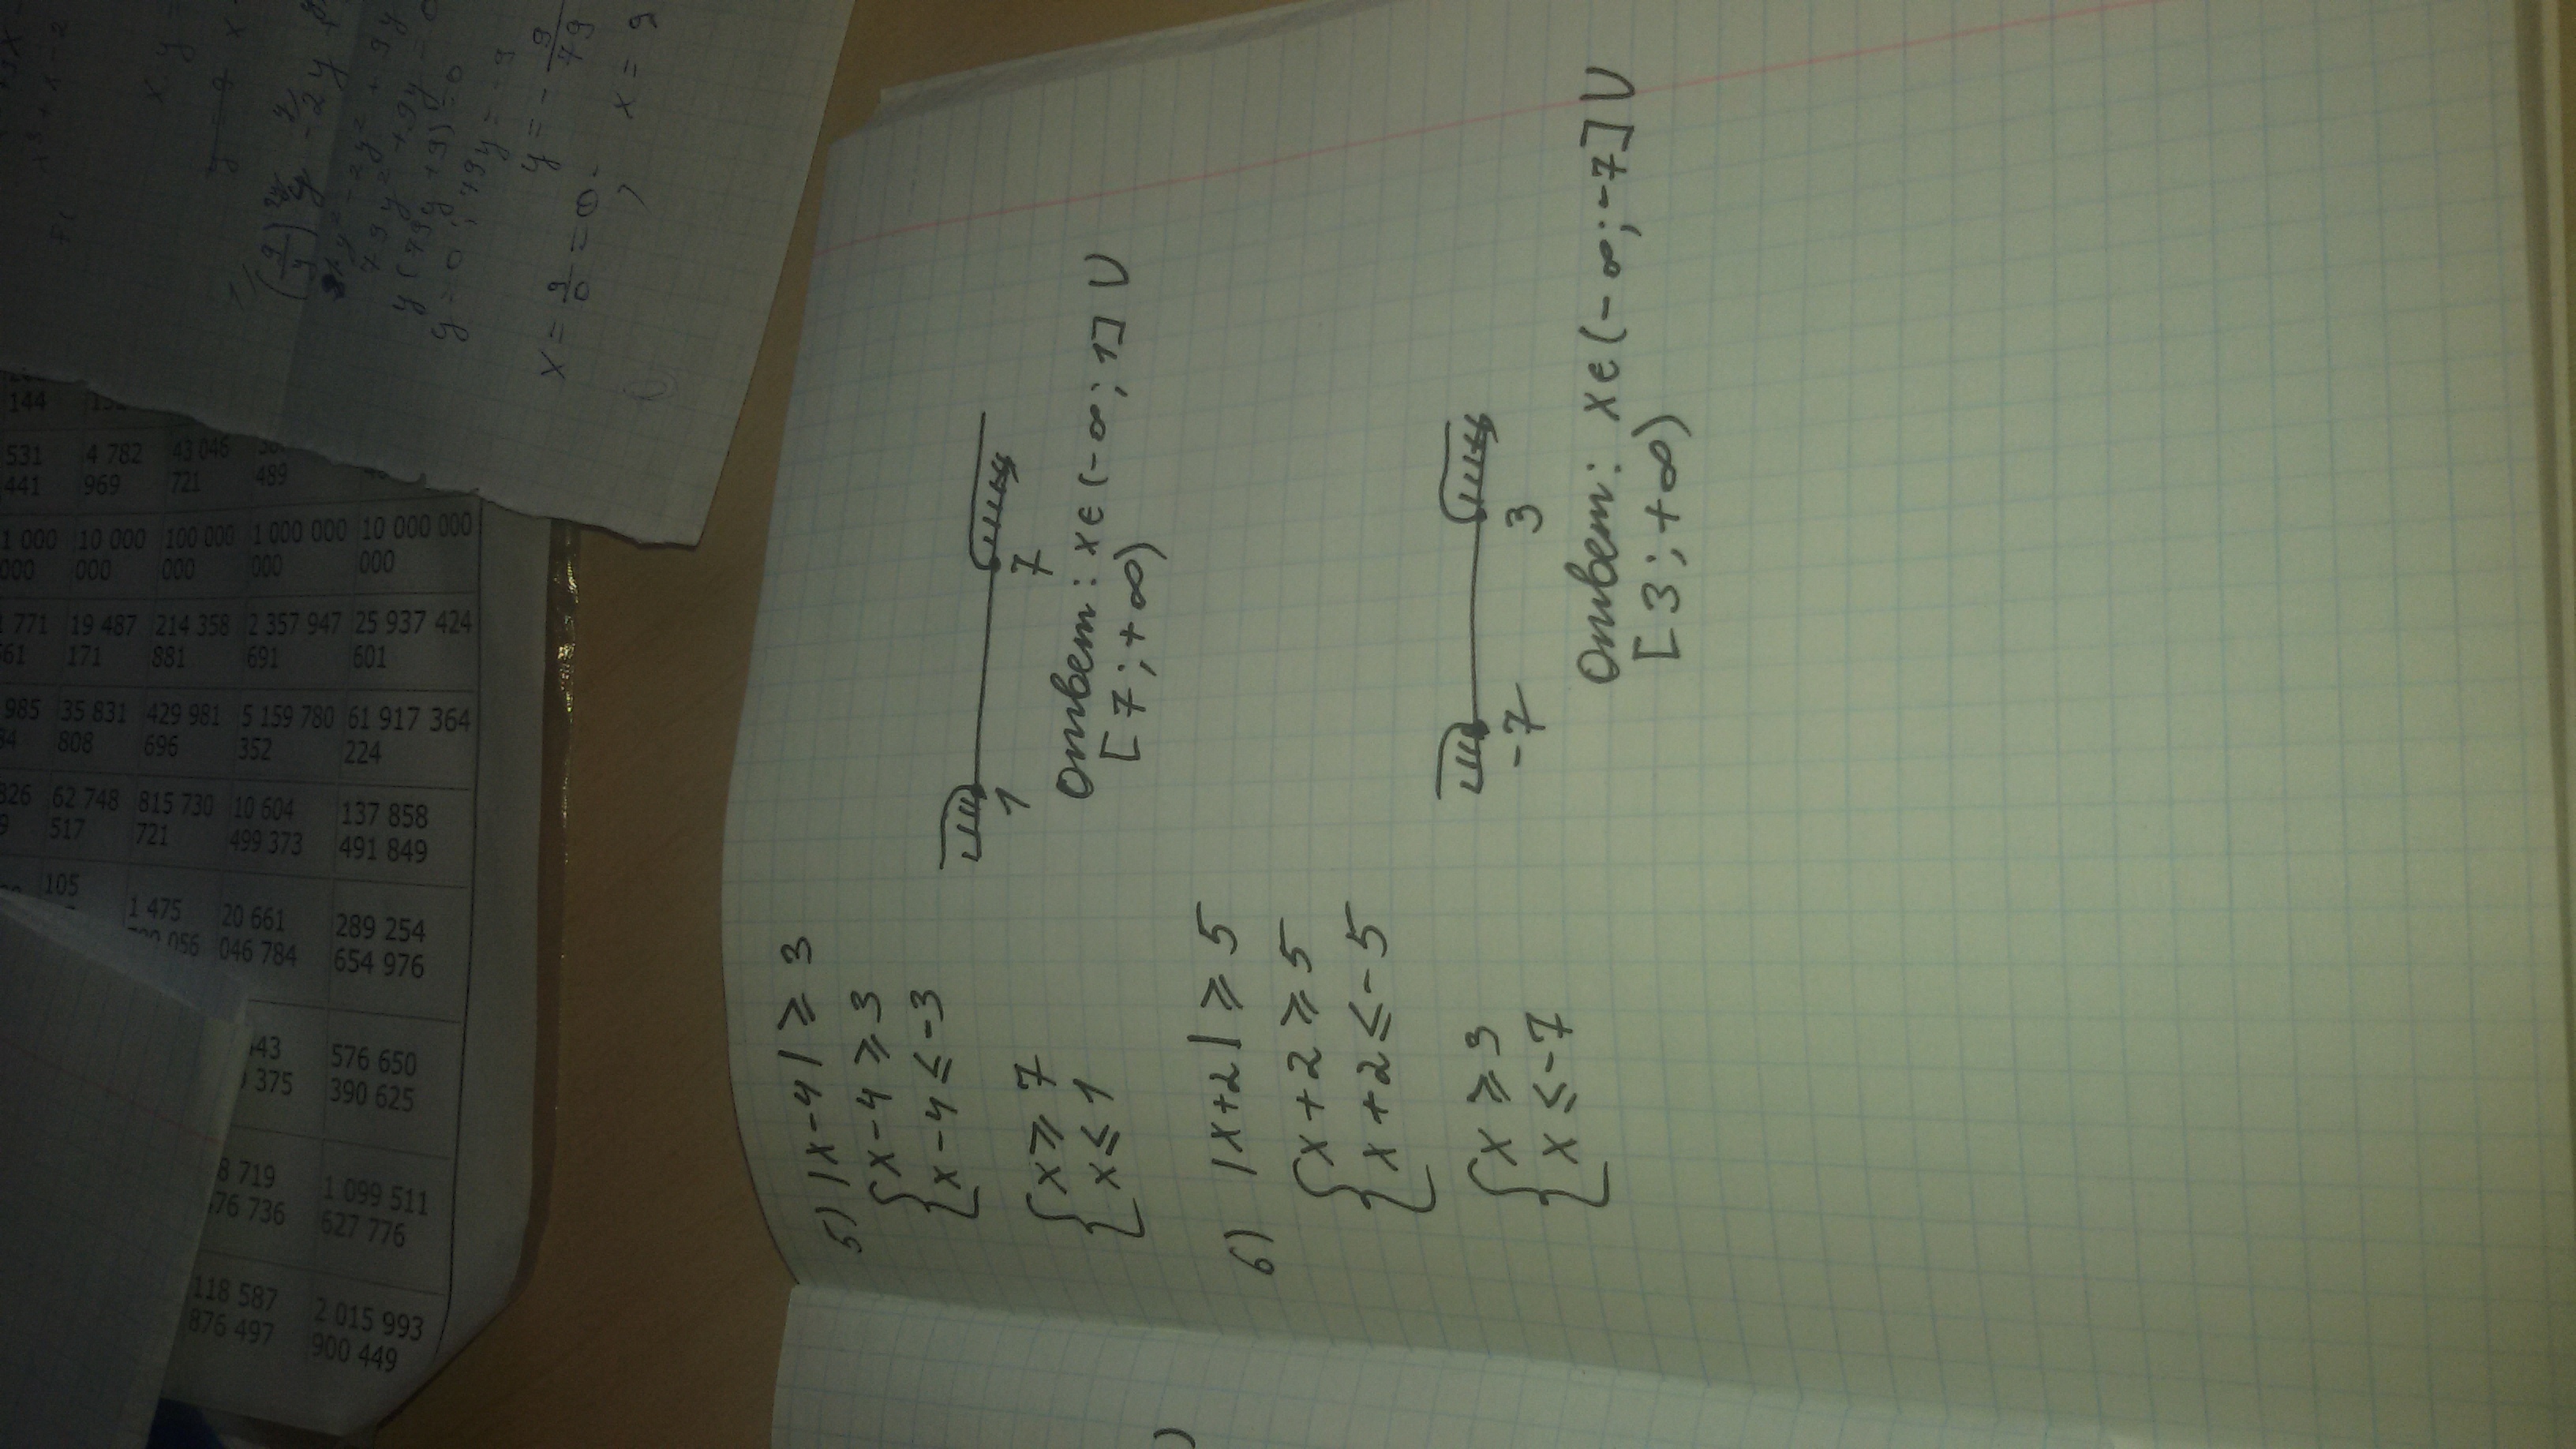 5) |x-4| ⩾ 3
{x-4 ⩾ 3
{x-4 ≤ -3
{x ⩾ 7
{x ≤ 1
1 7
Ответ: x∈(-∞; 1] U
[7; +∞)
6) |x+2| ⩾ 5
{x+2 ⩾ 5
{x+2 ≤ -5
{x ⩾ 3
{x ≤ -7
-7 3
Ответ: x∈(-∞; -7] U
[3; +∞)
x = 9/0 = 0
y = 0; 79y = -9
y = -9/79
x = 9
y(79y+9)=0
79y²+9y=0
144
531 441
4 782 969
43 046 721
489
1 000 000
10 000 000
100 000 000
1 000 000 000
10 000 000 000
1 771 561
19 487 171
214 358 881
2 357 947 691
25 937 424 601
985 84
35 831 808
429 981 696
5 159 780 352
61 917 364 224
826 9
62 748 517
815 730 721
10 604 499 373
137 858 491 849
105
1 475 056
20 661 046 784
289 254 654 976
43 375
576 650 390 625
8 719 76 736
1 099 511 627 776
118 587 876 497
2 015 993 900 449